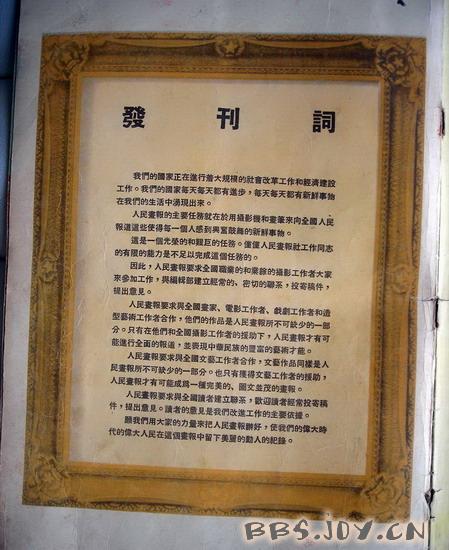 發刊詞
我們的國家正在進行着大規模的社會改革工作和經濟建設
工作。我們的國家每天每天都有進步，每天每天都有新鮮事物
在我們的生活中湧現出來。
人民畫報的主要任務就在於用攝影機和畫筆來向全國人民
報道這些使得每一個人感到興奮鼓舞的新鮮事物。
這是一個光榮的和艱巨的任務。僅僅人民畫報社工作同志
的有限的能力是不足以完成這個任務的。
因此，人民畫報要求全國職業的和業餘的攝影工作者大家
來參加工作，與編輯部建立經常的、密切的聯系，投寄稿件，
提出意見。
人民畫報要求與全國畫家、電影工作者、戲劇工作者和造
型藝術工作者合作，他們的作品是人民畫報所不可缺少的一部
分。只有在他們和全國攝影工作者的援助下，人民畫報才有可
能進行全面的報道，並表現中華民族的豐富的藝術才能。
人民畫報要求與全國文藝工作者合作，文藝作品同樣是人
民畫報所不可缺少的一部分。也只有獲得文藝工作者的援助，
人民畫報才有可能成為一種完美的、圖文並茂的畫報。
人民畫報要求與全國讀者建立聯系，歡迎讀者經常投寄稿
件，提出意見。讀者的意見是我們改進工作的主要依據。
願我們用大家的力量來把人民畫報辦好，使我們的偉大時
代的偉大人民在這個畫報中留下美麗的動人的紀錄。
BBS.JOY.CN